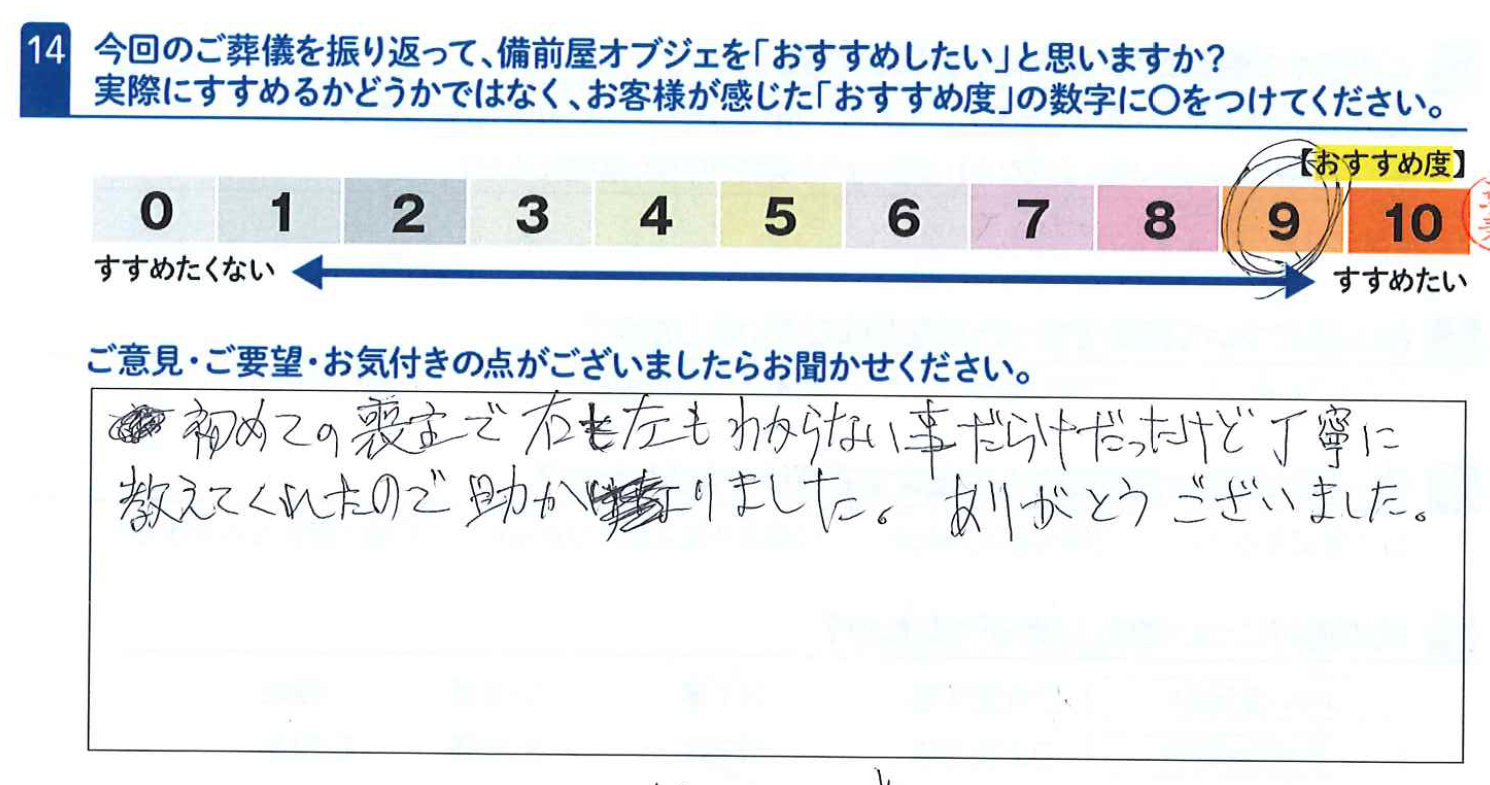 14 今回のご葬儀を振り返って、備前屋オブジェを「おすすめしたい」と思いますか?
実際にすすめるかどうかではなく、お客様が感じた「おすすめ度」の数字に〇をつけてください。
【おすすめ度】
0 1 2 3 4 5 6 7 8 9 10
すすめたくない すすめたい
ご意見・ご要望・お気付きの点がございましたらお聞かせください。
初めての喪主で右も左もわからない事だらけだったけど丁寧に
教えてくれたので助かりました。ありがとうございました。